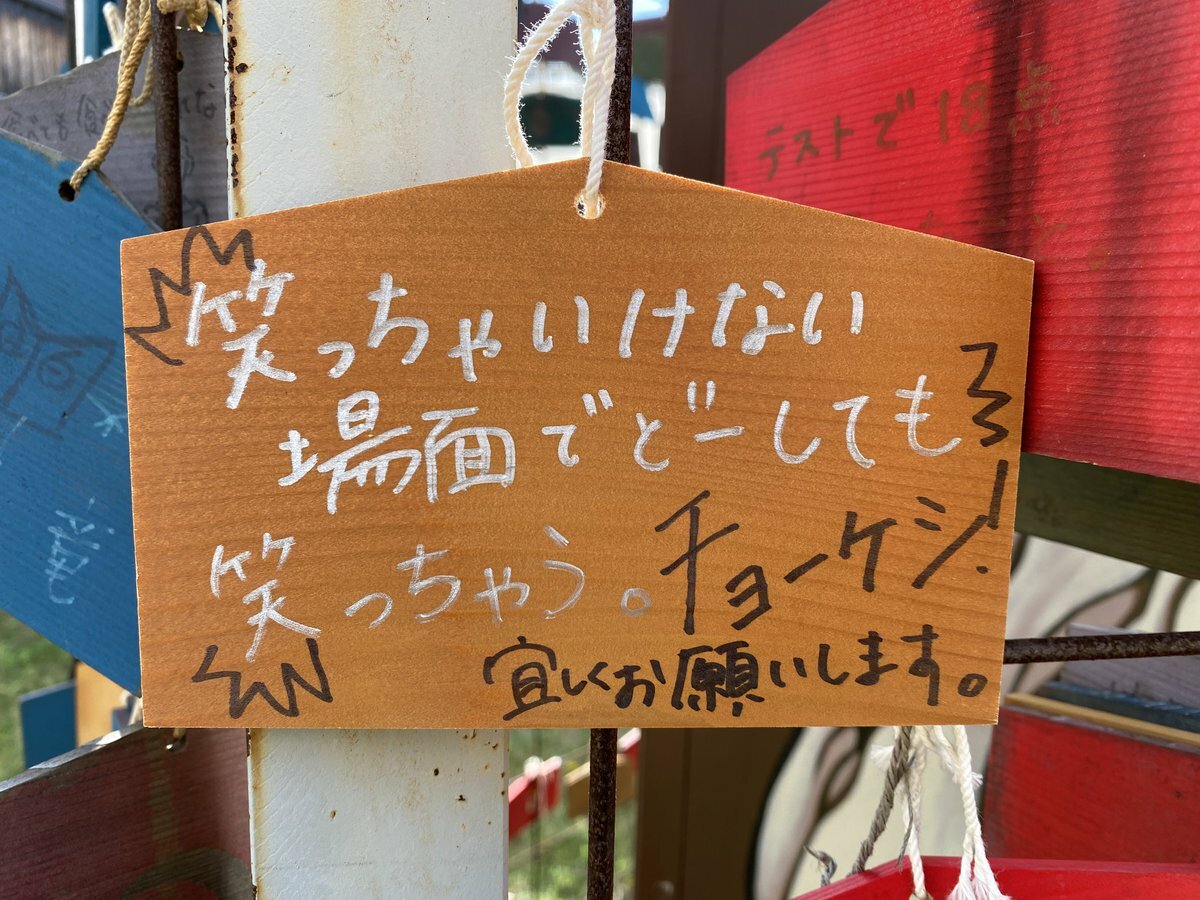 笑っちゃいけない
場面でどーしても
笑っちゃう。チョーケシ!
宜しくお願いします。
テストで18点